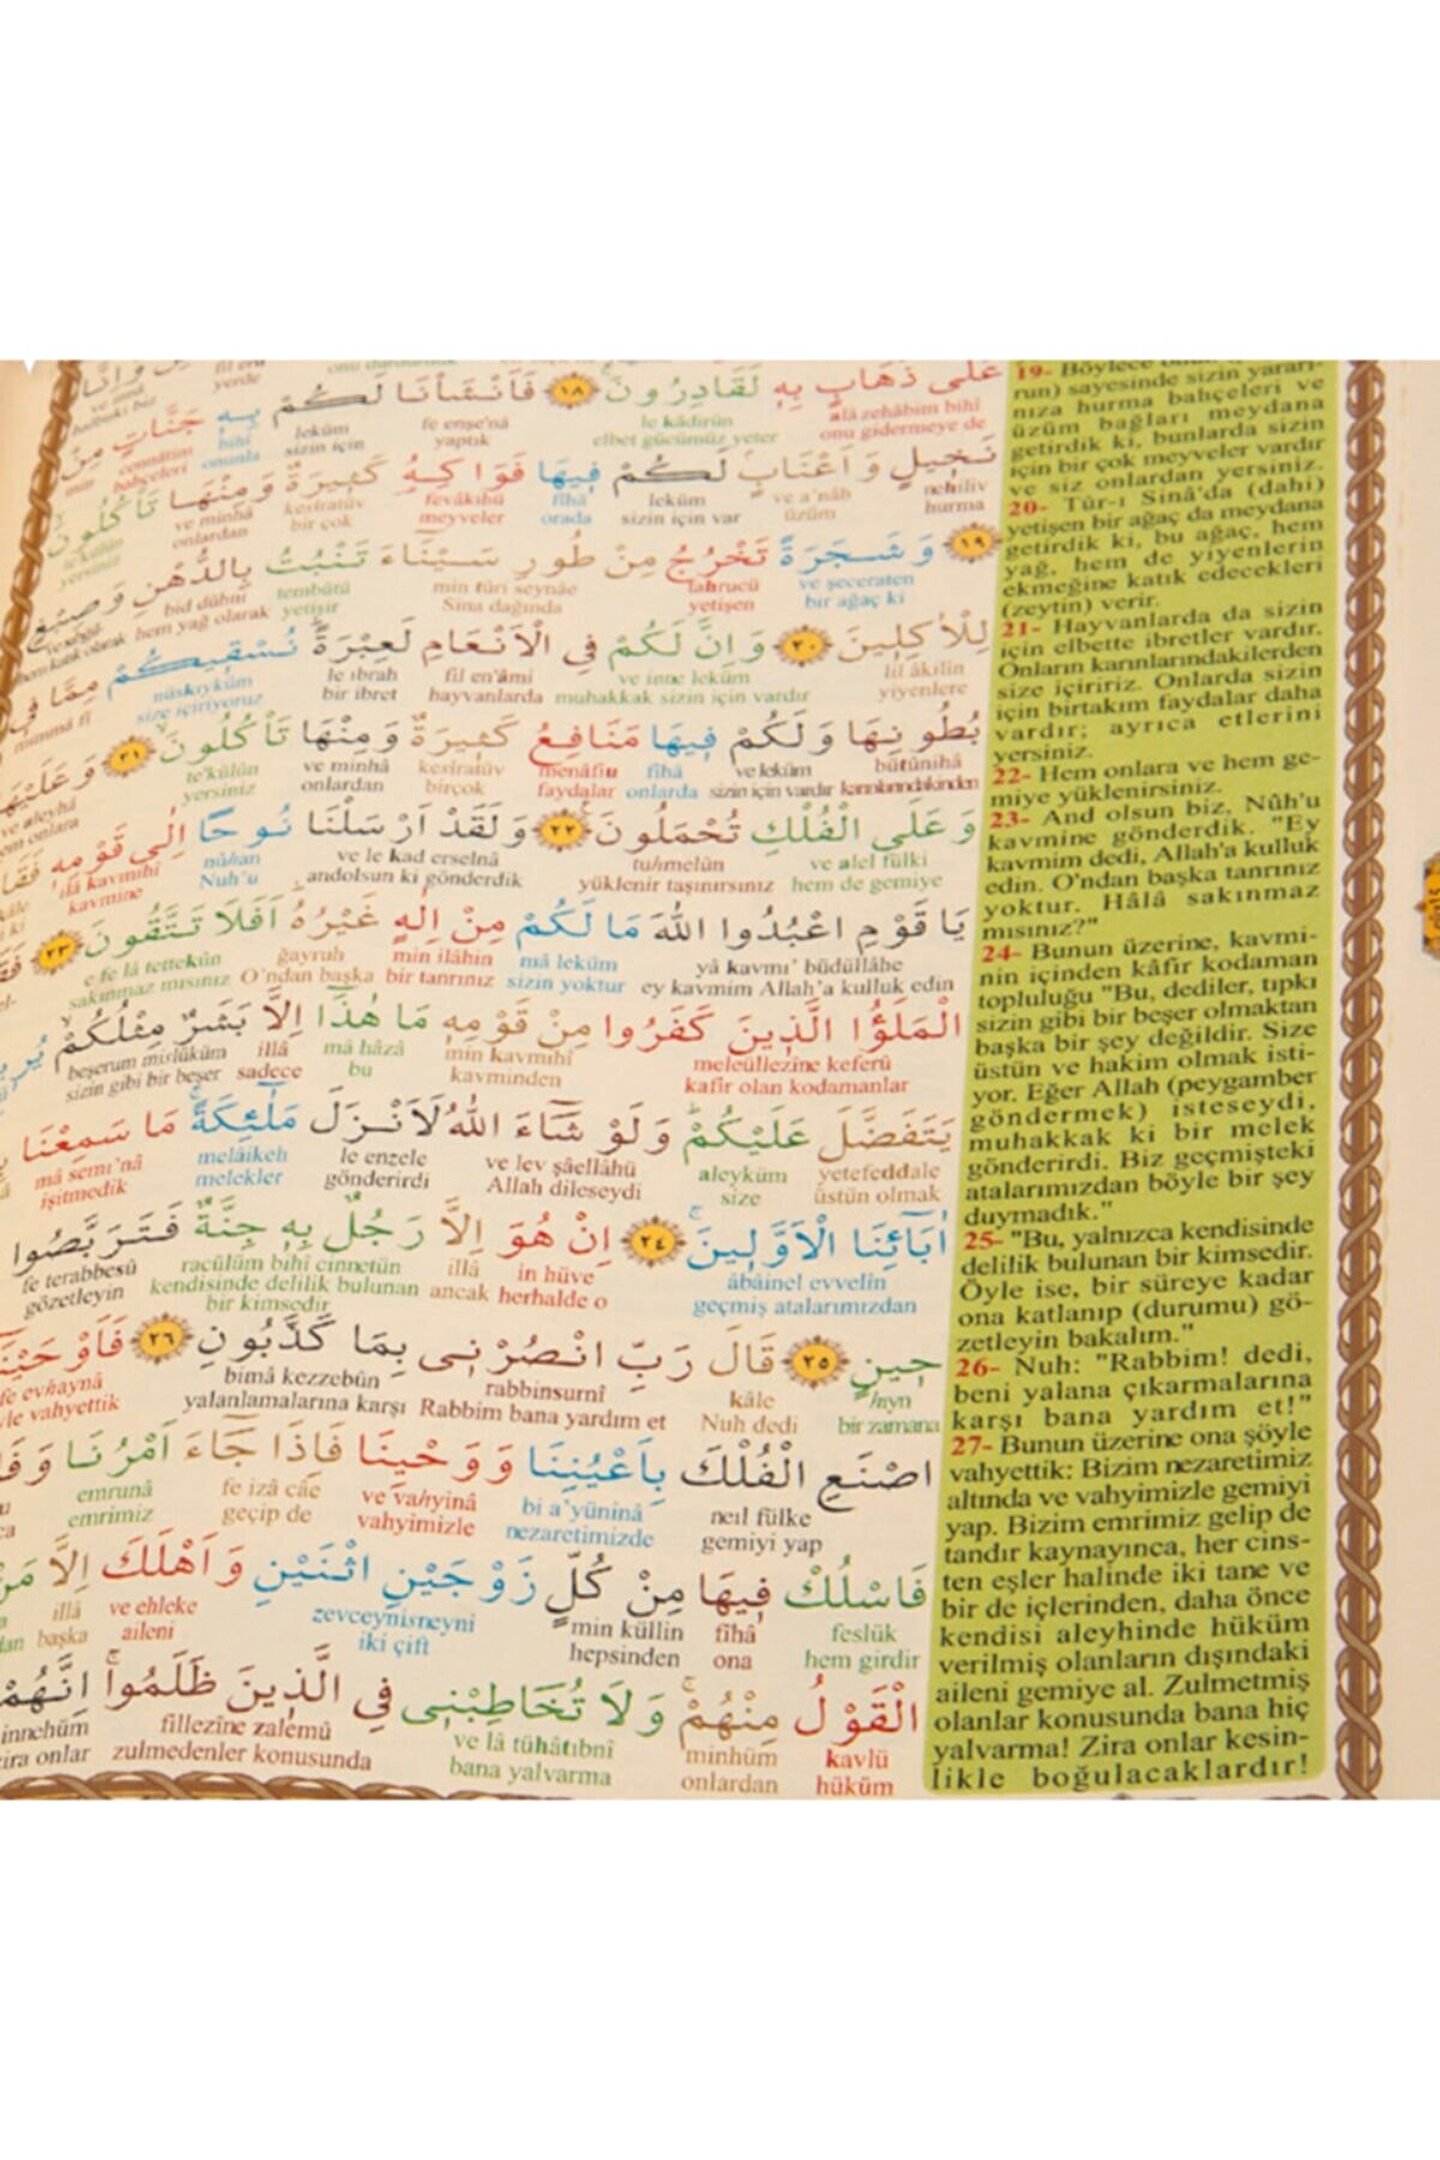 عَلٰى ذَهَابٍ بِهِ لَقَادِرُونَ ١٨ فَاَنْشَأْنَا لَكُمْ بِهِ جَنَّاتٍ مِنْ
alâ zehâbim bihî le kâdirûn fe enşe'nâ leküm bihî cennâtim min
onu gidermeye de elbet gücümüz yeter yaptık sizin için onunla bahçeleri
نَخِيلٍ وَاَعْنَابٍ لَكُمْ فِيهَا فَوَاكِهُ كَثِيرَةٌ وَمِنْهَا تَأْكُلُونَ
nehîliv ve a'nâb leküm fîhâ fevâkihü kesîratüv ve minhâ te'külûn
hurma üzüm sizin için var orada meyveler bir çok onlardan yersiniz
١٩ وَشَجَرَةً تَخْرُجُ مِنْ طُورِ سَيْنَاءَ تَنْبُتُ بِالدُّهْنِ وَصِبْغٍ
ve şeceraten tahrucü min tûri seynâe tembütü bid dühni ve sıbğıl
bir ağaç ki yetişen Sina dağında yetişir hem yağ olarak hem katık olarak
لِلْاٰكِلِينَ ٢٠ وَاِنَّ لَكُمْ فِي الْاَنْعَامِ لَعِبْرَةً نُسْقِيكُمْ مِمَّا فِي
lil âkilîn ve inne leküm fil en'âmi le ıbrah nüskıyküm mimmâ fî
yiyenlere muhakkak sizin için vardır hayvanlarda bir ibret size içiriyoruz
بُطُونِهَا وَلَكُمْ فِيهَا مَنَافِعُ كَثِيرَةٌ وَمِنْهَا تَأْكُلُونَ ٢١ وَعَلَيْهَا
bütûnihâ ve leküm fîhâ menâfiu kesîratüv ve minhâ te'külûn ve aleyhâ
karınlarındakinden sizin için vardır onlarda faydalar birçok onlardan yersiniz
وَعَلَى الْفُلْكِ تُحْمَلُونَ ٢٢ وَلَقَدْ اَرْسَلْنَا نُوحًا اِلٰى قَوْمِهِ
ve alel fülki tuhmelûn ve le kad erselnâ nûhan ilâ kavmihî
hem de gemiye yüklenir taşınırsınız andolsun ki gönderdik Nuh'u kavmine
يَا قَوْمِ اعْبُدُوا اللّٰهَ مَا لَكُمْ مِنْ اِلٰهٍ غَيْرُهُ اَفَلَا تَتَّقُونَ ٢٣
yâ kavmı' büdüllâhe mâ leküm min ilâhin ğayruh e fe lâ tettekûn
ey kavmim Allah'a kulluk edin sizin yoktur bir tanrınız O'ndan başka sakınmaz mısınız
الْمَلَؤُا الَّذِينَ كَفَرُوا مِنْ قَوْمِهِ مَا هٰذَا اِلَّا بَشَرٌ مِثْلُكُمْ
meleüllezîne keferû min kavmihî mâ hâzâ illâ beşerum mislüküm
kafir olan kodamanlar kavminden bu sadece sizin gibi bir beşer
يَتَفَضَّلَ عَلَيْكُمْ وَلَوْ شَاءَ اللّٰهُ لَاَنْزَلَ مَلٰئِكَةً مَا سَمِعْنَا
yetefeddale aleyküm ve lev şâellâhü le enzele melâikeh mâ semı'nâ
üstün olmak size Allah dileseydi gönderirdi melekler işitmedik
اٰبَائِنَا الْاَوَّلِينَ ٢٤ اِنْ هُوَ اِلَّا رَجُلٌ بِهِ جِنَّةٌ فَتَرَبَّصُوا
âbâinel evvelîn in hüve illâ racülüm bihî cinnetün fe terabbesû
geçmiş atalarımızdan herhalde o ancak kendisinde delilik bulunan gözetleyin
bir kimsedir
حِينٍ ٢٥ قَالَ رَبِّ انْصُرْنِي بِمَا كَذَّبُونِ ٢٦ فَاَوْحَيْنَا
hıyn kâle rabbinsurnî bimâ kezzebûn fe evhaynâ
bir zamana Nuh dedi Rabbim bana yardım et yalanlamalarına karşı vahyettik
اصْنَعِ الْفُلْكَ بِاَعْيُنِنَا وَوَحْيِنَا فَاِذَا جَاءَ اَمْرُنَا
neıl fülke bi a'yüninâ ve vahyinâ fe izâ câe emrunâ
gemiyi yap nezaretimizde vahyimizle geçip de emrimiz
فَاسْلُكْ فِيهَا مِنْ كُلٍّ زَوْجَيْنِ اثْنَيْنِ وَاَهْلَكَ اِلَّا
feslük fîhâ min küllin zevceynisneyni ve ehleke illâ
hem girdir ona hepsinden iki çift aileni başka
الْقَوْلُ مِنْهُمْ وَلَا تُخَاطِبْنِي فِي الَّذِينَ ظَلَمُوا اِنَّهُمْ
kavlü minhüm ve lâ tühâtıbnî fillezîne zalemû innehüm
hüküm onlardan bana yalvarma zulmedenler konusunda zira onlar
19- Böylece
run) sayesinde sizin yararı-
nıza hurma bahçeleri ve
üzüm bağları meydana
getirdik ki, bunlarda sizin
için bir çok meyveler vardır
ve siz onlardan yersiniz.
20- Tûr-ı Sinâ'da (dahi)
yetişen bir ağaç da meydana
getirdik ki, bu ağaç, hem
yağ, hem de yiyenlerin
ekmeğine katık edecekleri
(zeytin) verir.
21- Hayvanlarda da sizin
için elbette ibretler vardır.
Onların karınlarındakilerden
size içiririz. Onlarda sizin
için birtakım faydalar daha
vardır; ayrıca etlerini
yersiniz.
22- Hem onlara ve hem ge-
miye yüklenirsiniz.
23- And olsun biz, Nûh'u
kavmine gönderdik. "Ey
kavmim dedi, Allah'a kulluk
edin. O'ndan başka tanrınız
yoktur. Hâlâ sakınmaz
mısınız?"
24- Bunun üzerine, kavmi-
nin içinden kâfir kodaman
topluluğu "Bu, dediler, tıpkı
sizin gibi bir beşer olmaktan
başka bir şey değildir. Size
üstün ve hakim olmak isti-
yor. Eğer Allah (peygamber
göndermek) isteseydi,
muhakkak ki bir melek
gönderirdi. Biz geçmişteki
atalarımızdan böyle bir şey
duymadık."
25- "Bu, yalnızca kendisinde
delilik bulunan bir kimsedir.
Öyle ise, bir süreye kadar
ona katlanıp (durumu) gö-
zetleyin bakalım."
26- Nuh: "Rabbim! dedi,
beni yalana çıkarmalarına
karşı bana yardım et!"
27- Bunun üzerine ona şöyle
vahyettik: Bizim nezaretimiz
altında ve vahyimizle gemiyi
yap. Bizim emrimiz gelip de
tandır kaynayınca, her cins-
ten eşler halinde iki tane ve
bir de içlerinden, daha önce
kendisi aleyhinde hüküm
verilmiş olanların dışındaki
aileni gemiye al. Zulmetmiş
olanlar konusunda bana hiç
yalvarma! Zira onlar kesin-
likle boğulacaklardır!